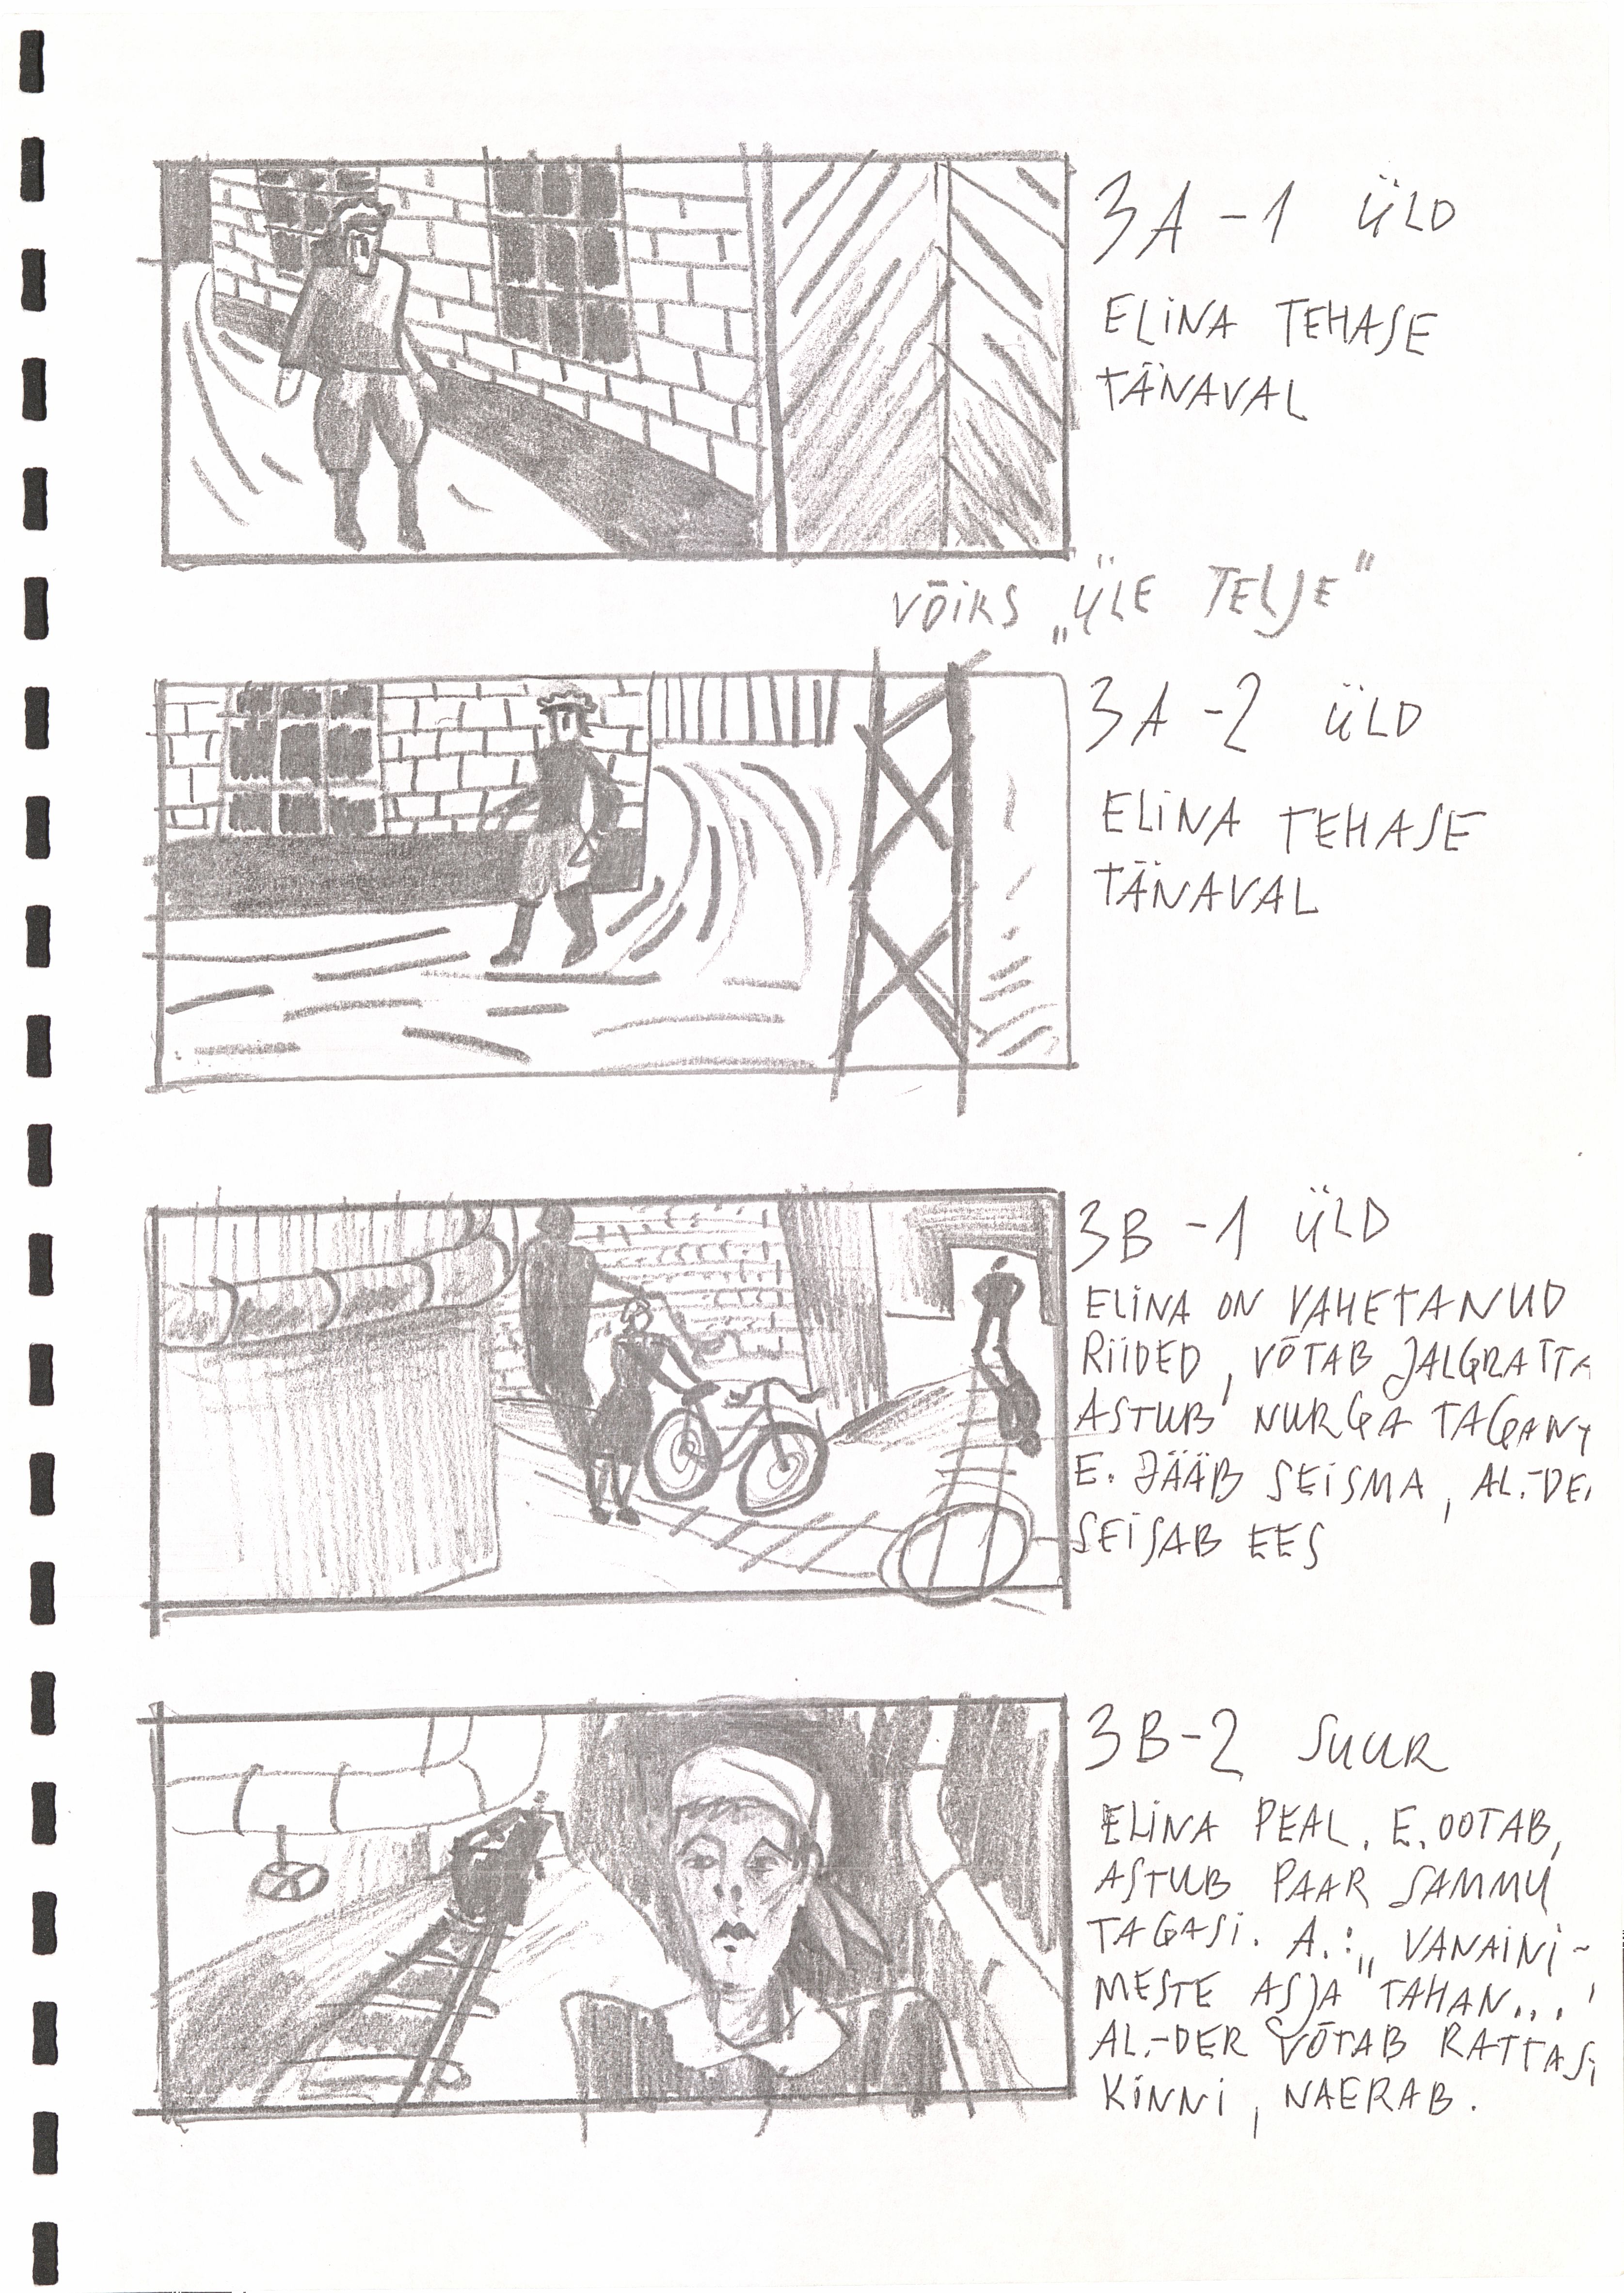 3A-1 ÜLD
ELINA TEHASE
TÄNAVAL
VÕIKS „ÜLE TELJE"
3A-2 ÜLD
ELINA TEHASE
TÄNAVAL
3B-1 ÜLD
ELINA ON VAHETANUD
RIIDED, VÕTAB JALGRATTA
ASTUB NURGA TAGANT
E. JÄÄB SEISMA, AL.-DE
SEISAB EES
3B-2 SUUR
ELINA PEAL. E. OOTAB,
ASTUB PAAR SAMMU
TAGASI. A.: „VANAINI-
MESTE ASJA TAHAN..."
AL.-DER VÕTAB RATTASI
KINNI, NAERAB.